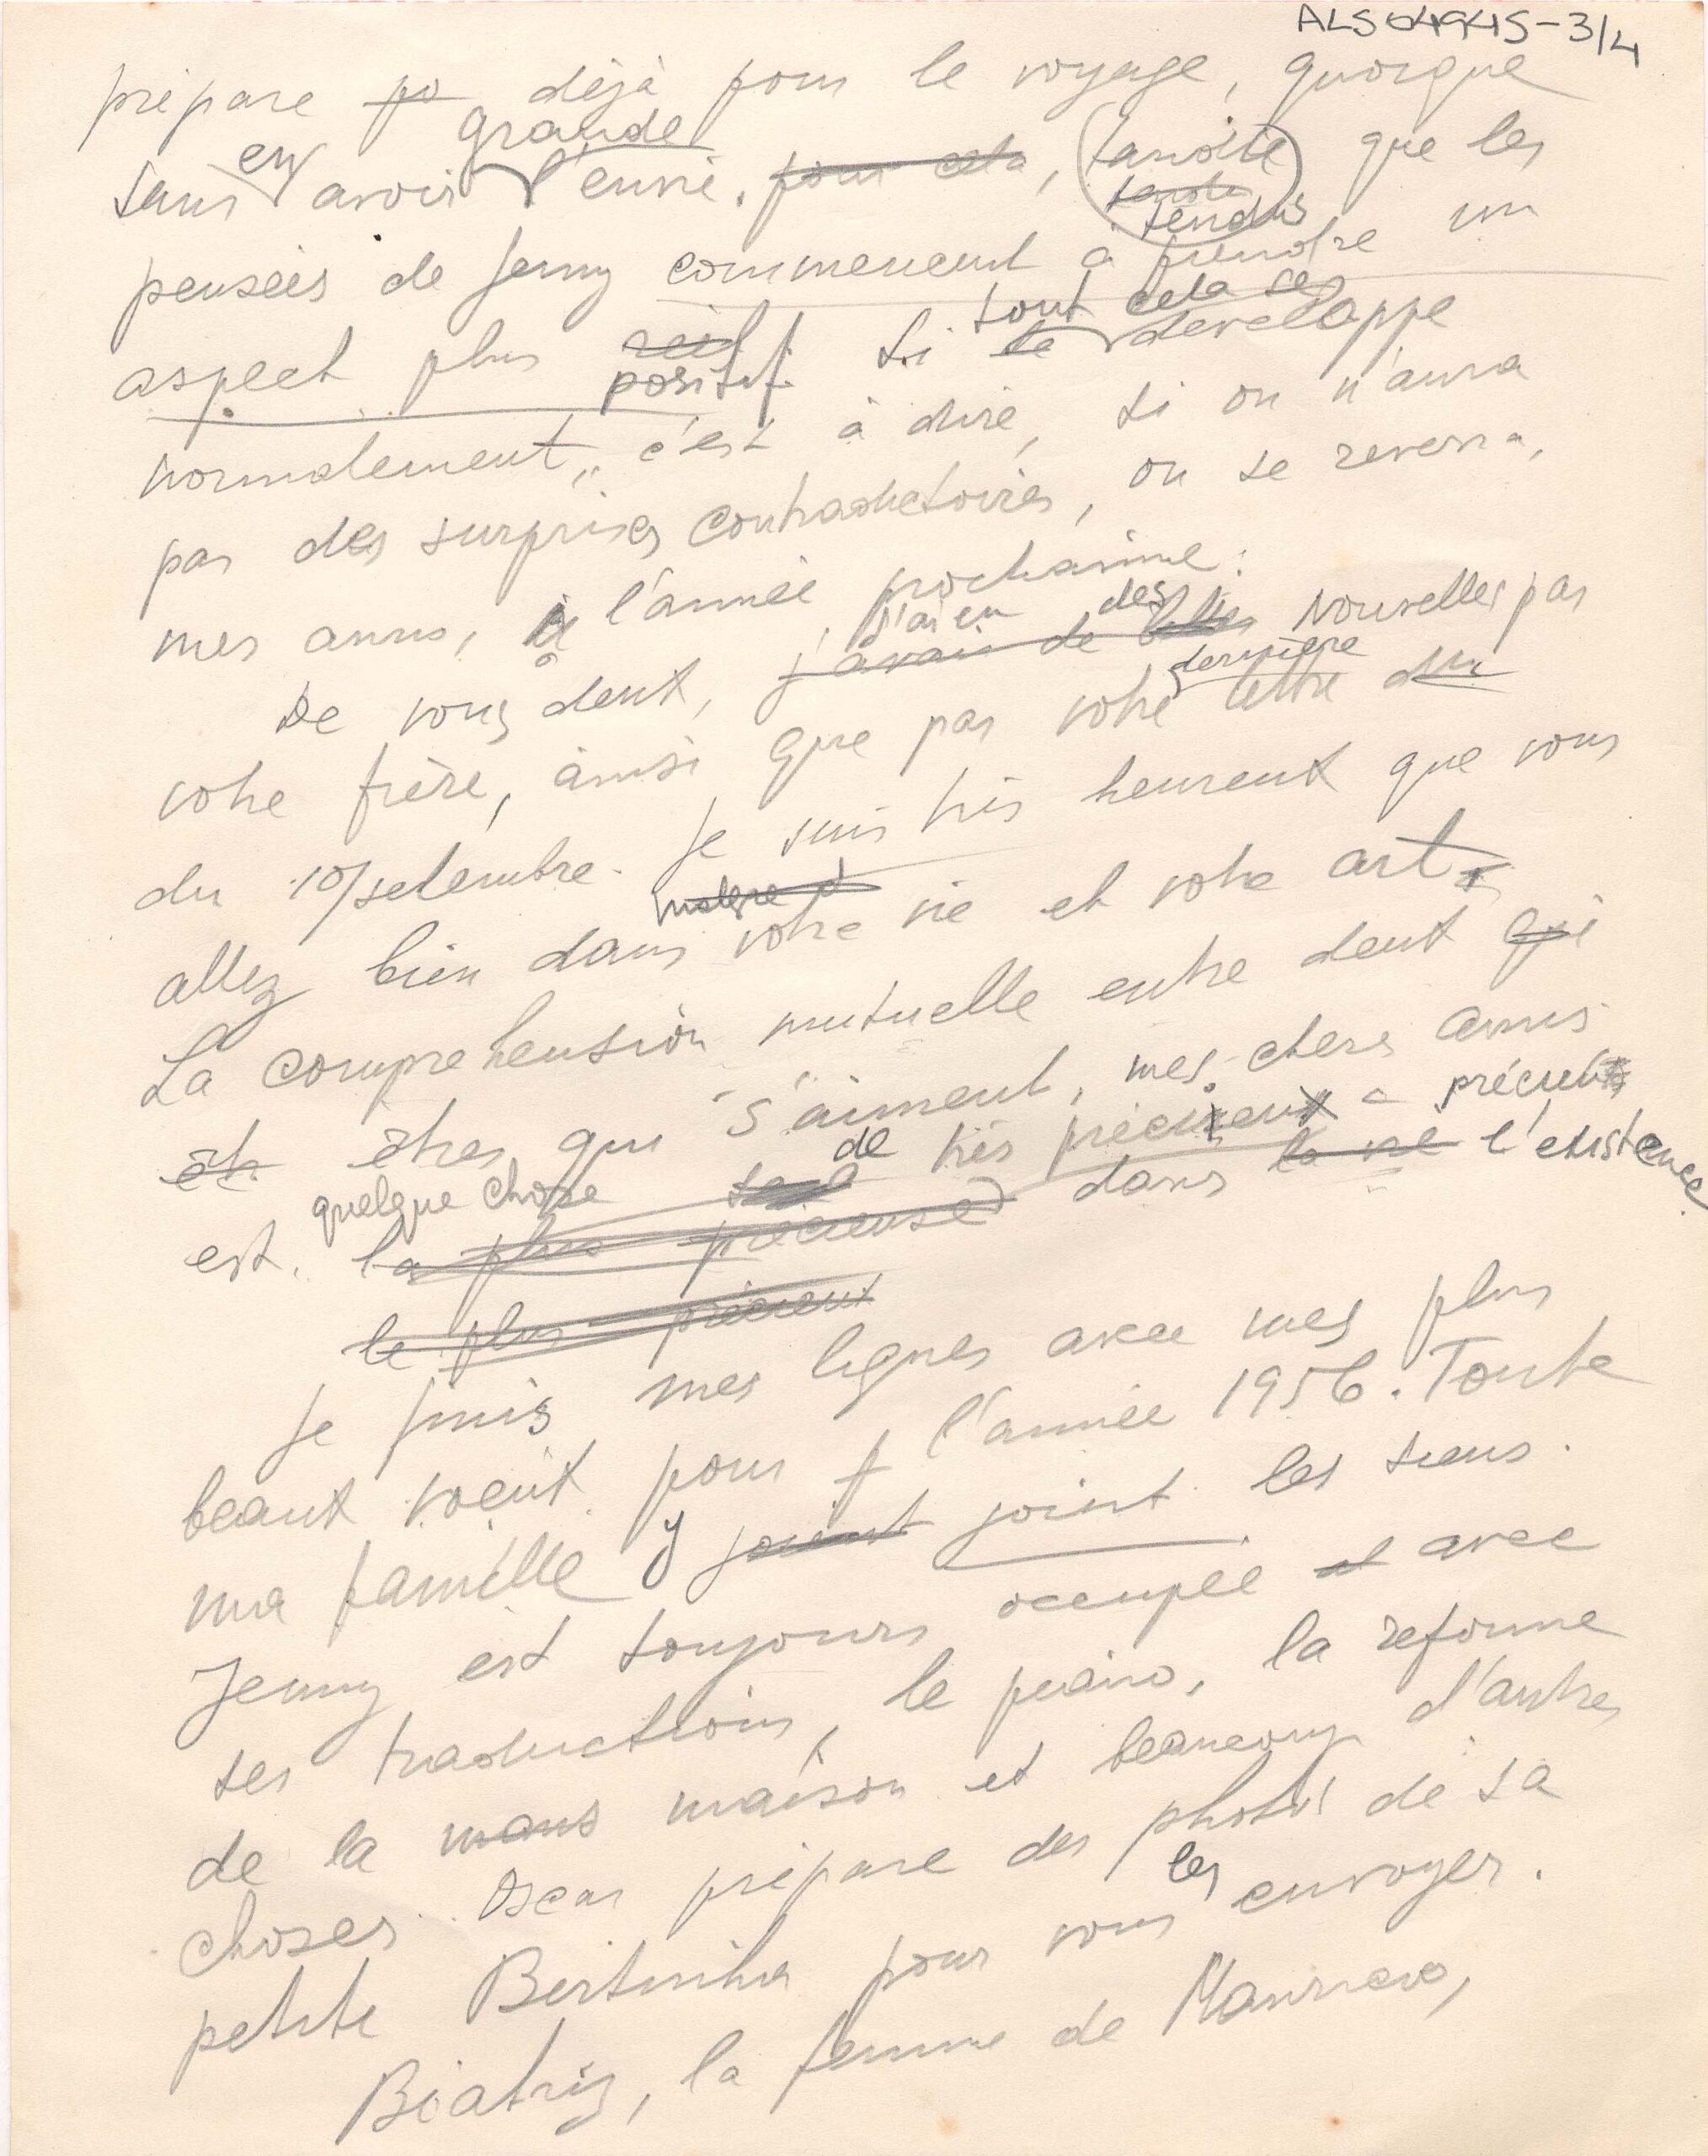 ALS 04945-3/4
prepare po déjà pour le voyage, quoique
grande
en
sans avoir l'envie, pour cela, tandie que les
tandis
tendis
pensées de Jenny commencent à prendre un
tout cela se
aspect plus réel si le developpe
positif.
normalement, c'est à dire, si on n'aura
pas des surprises contradictoires, on se reverra,
mes amis, à l'année prochaine.
j'ai eu des
De vous deux, j'avais de belles nouvelles par
dernière
votre frère, ainsi que par votre lettre du
du 10/setembre. Je suis très heureux que vous
malgre
allez bien dans votre vie et votre art.
La comprehension mutuelle entre deux qui
êt. êtres qui s'aiment, mes chers amis
quelque chose de très précieux précieux
est la plus précieuse dans la vie l'existence.
le plus précieux
Je finis mes lignes avec mes plus
beaux voeux pour l'année 1956. Toute
ma famille y joient joint les siens.
Jenny est toujours occupée et avec
ses traductions, le piano, la reforme
de la mans maison et beaucoup d'autres
choses. Oscar prépare des photos de sa
les
petite Bertinha pour vous envoyer.
Béatriz, la femme de Mauricio,